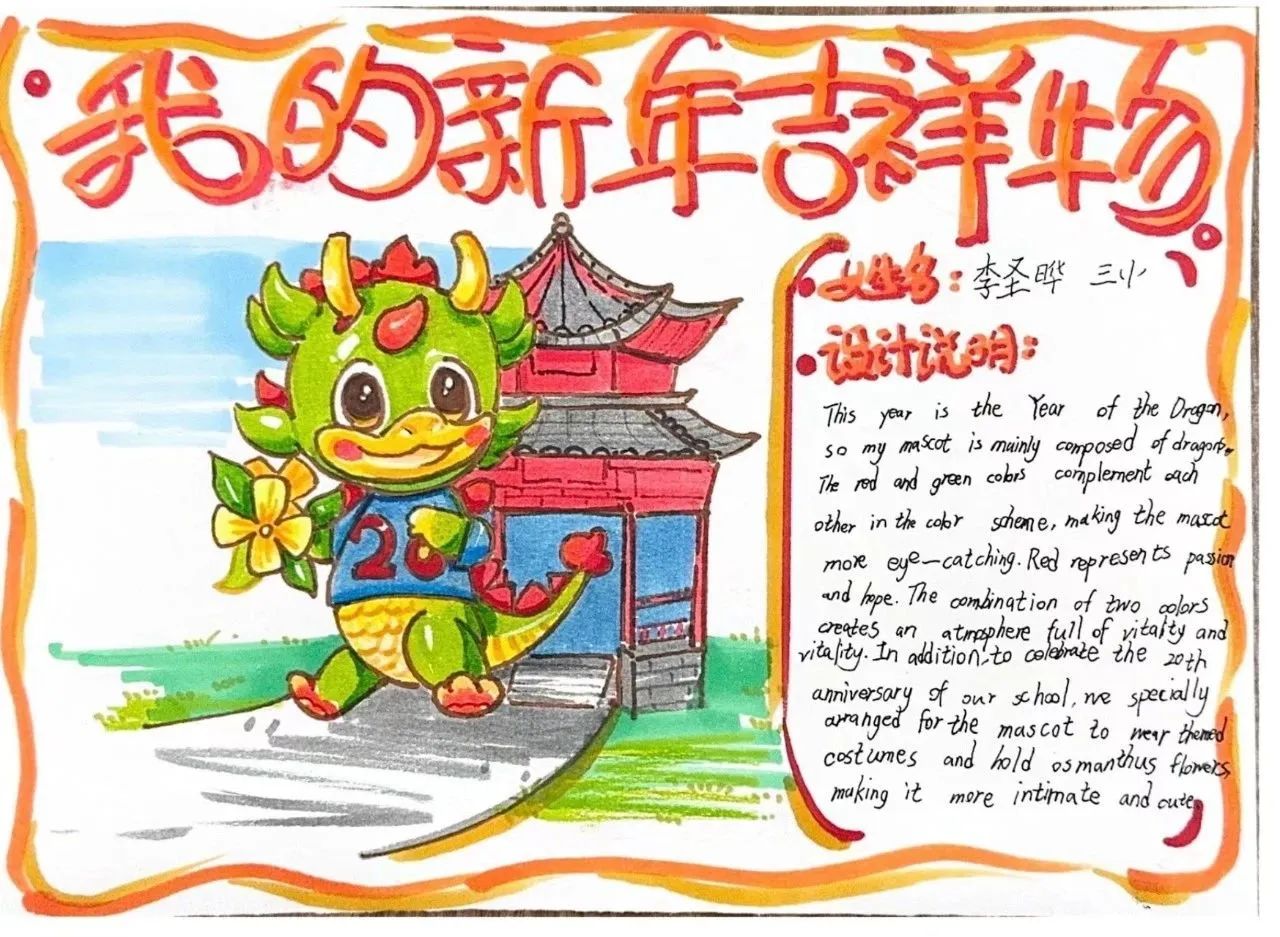 我的新年吉祥物
姓名：李圣晔 三小
设计说明：
20
This year is the Year of the Dragon,
so my mascot is mainly composed of dragons.
The red and green colors complement each
other in the color scheme, making the mascot
more eye-catching. Red represents passion
and hope. The combination of two colors
creates an atmosphere full of vitality and
vitality. In addition, to celebrate the 20th
anniversary of our school, we specially
arranged for the mascot to wear themed
costumes and hold osmanthus flowers,
making it more intimate and cute.